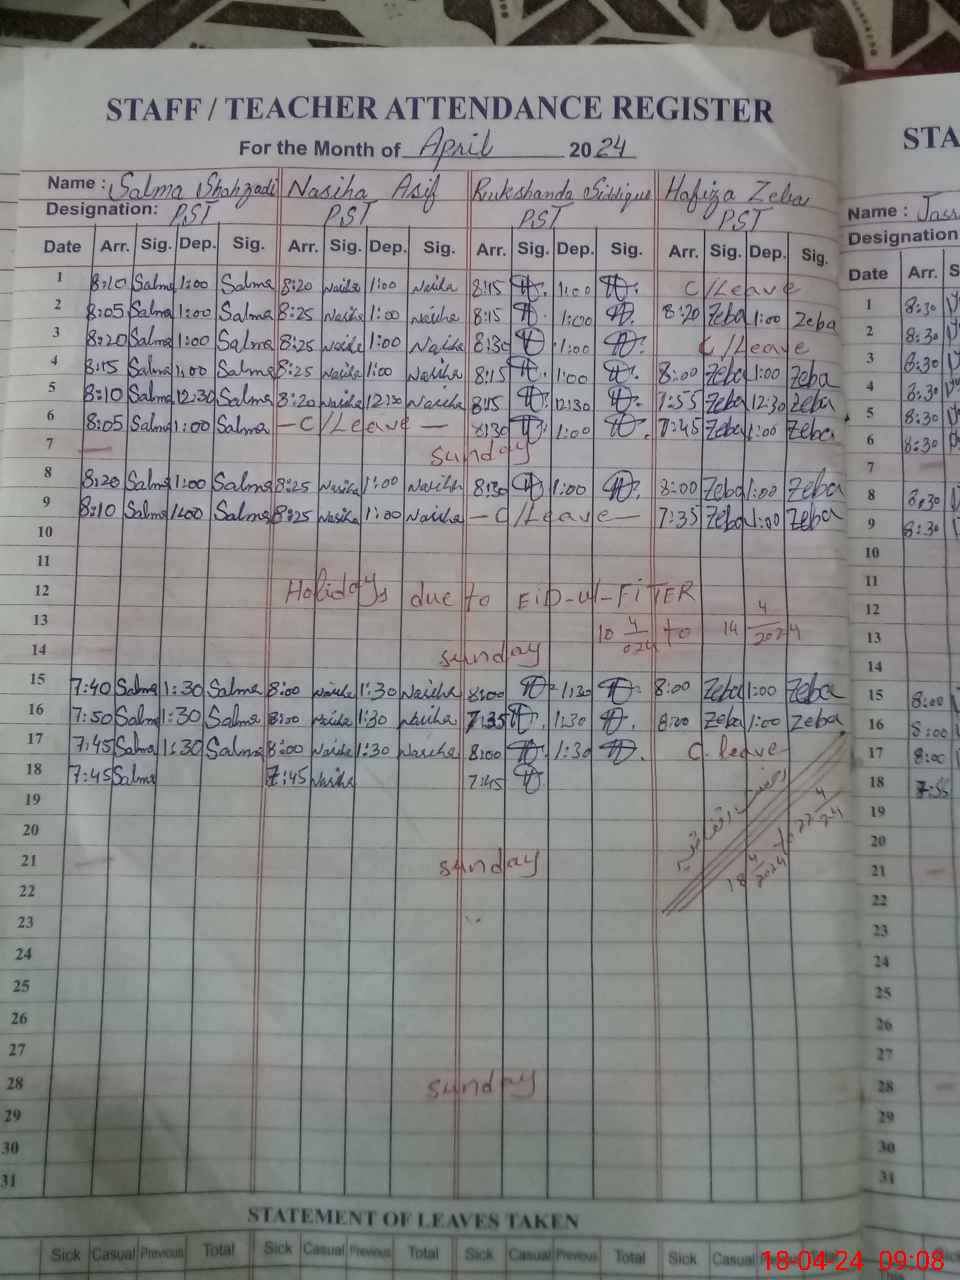 STAFF / TEACHER ATTENDANCE REGISTER
STA
For the Month of April 2024
Name : Salma Shahzadi Nasiha Asif Rukshanda Siddique Hafiza Zeba
Name :
Designation: PST PST PST PST
Designation
Date Arr. Sig. Dep. Sig. Arr. Sig. Dep. Sig. Arr. Sig. Dep. Sig. Arr. Sig. Dep. Sig.
Date Arr.
1 8:10 Salma 1:00 Salma 8:20 1:00 8:15 1:00 C/Leave
1 8:30
2 8:05 Salma 1:00 Salma 8:25 1:00 8:15 1:00 8:20 Zeba 1:00 Zeba
2 8:30
3 8:20 Salma 1:00 Salma 8:25 1:00 8:30 1:00 C/Leave
3 8:30
4 8:15 Salma 1:00 Salma 8:25 1:00 8:15 1:00 8:00 Zeba 1:00 Zeba
4 8:30
5 8:10 Salma 12:30 Salma 8:20 12:30 8:15 12:30 7:55 Zeba 12:30 Zeba
5 8:30
6 8:05 Salma 1:00 Salma - C/Leave - 8:30 1:00 7:45 Zeba 1:00 Zeba
6 8:30
7 sunday
7
8 8:20 Salma 1:00 Salma 8:25 1:00 8:30 1:00 8:00 Zeba 1:00 Zeba
8 8:30
9 8:10 Salma 1:00 Salma 8:25 1:00 - C/Leave - 7:35 Zeba 1:00 Zeba
9 8:30
10
10
11
11
12 Holidays due to EID-ul-FITER
12
13 10 4/024 to 14 4/2024
13
14 sunday
14
15 7:40 Salma 1:30 Salma 8:00 1:30 8:00 1:30 8:00 Zeba 1:00 Zeba
15 8:00
16 7:50 Salma 1:30 Salma 8:00 1:30 7:35 1:30 8:00 Zeba 1:00 Zeba
16 8:00
17 7:45 Salma 1:30 Salma 8:00 1:30 8:00 1:30 C. leave
17 8:00
18 7:45 Salma 7:45 7:45
18 7:55
رخصت اتفاقیہ
18 4/2024 to 22 4/24
19
19
20
20
21 sunday
21
22
22
23
23
24
24
25
25
26
26
27
27
28 sunday
28
29
29
30
30
31
31
STATEMENT OF LEAVES TAKEN
Sick Casual Previous Total Sick Casual Previous Total Sick Casual Previous Total Sick Casual
18-04-24 09:08